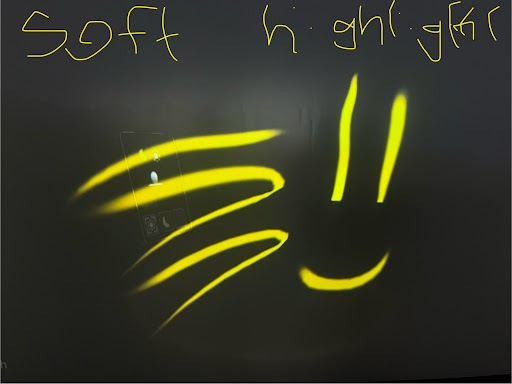 Soft highlighter